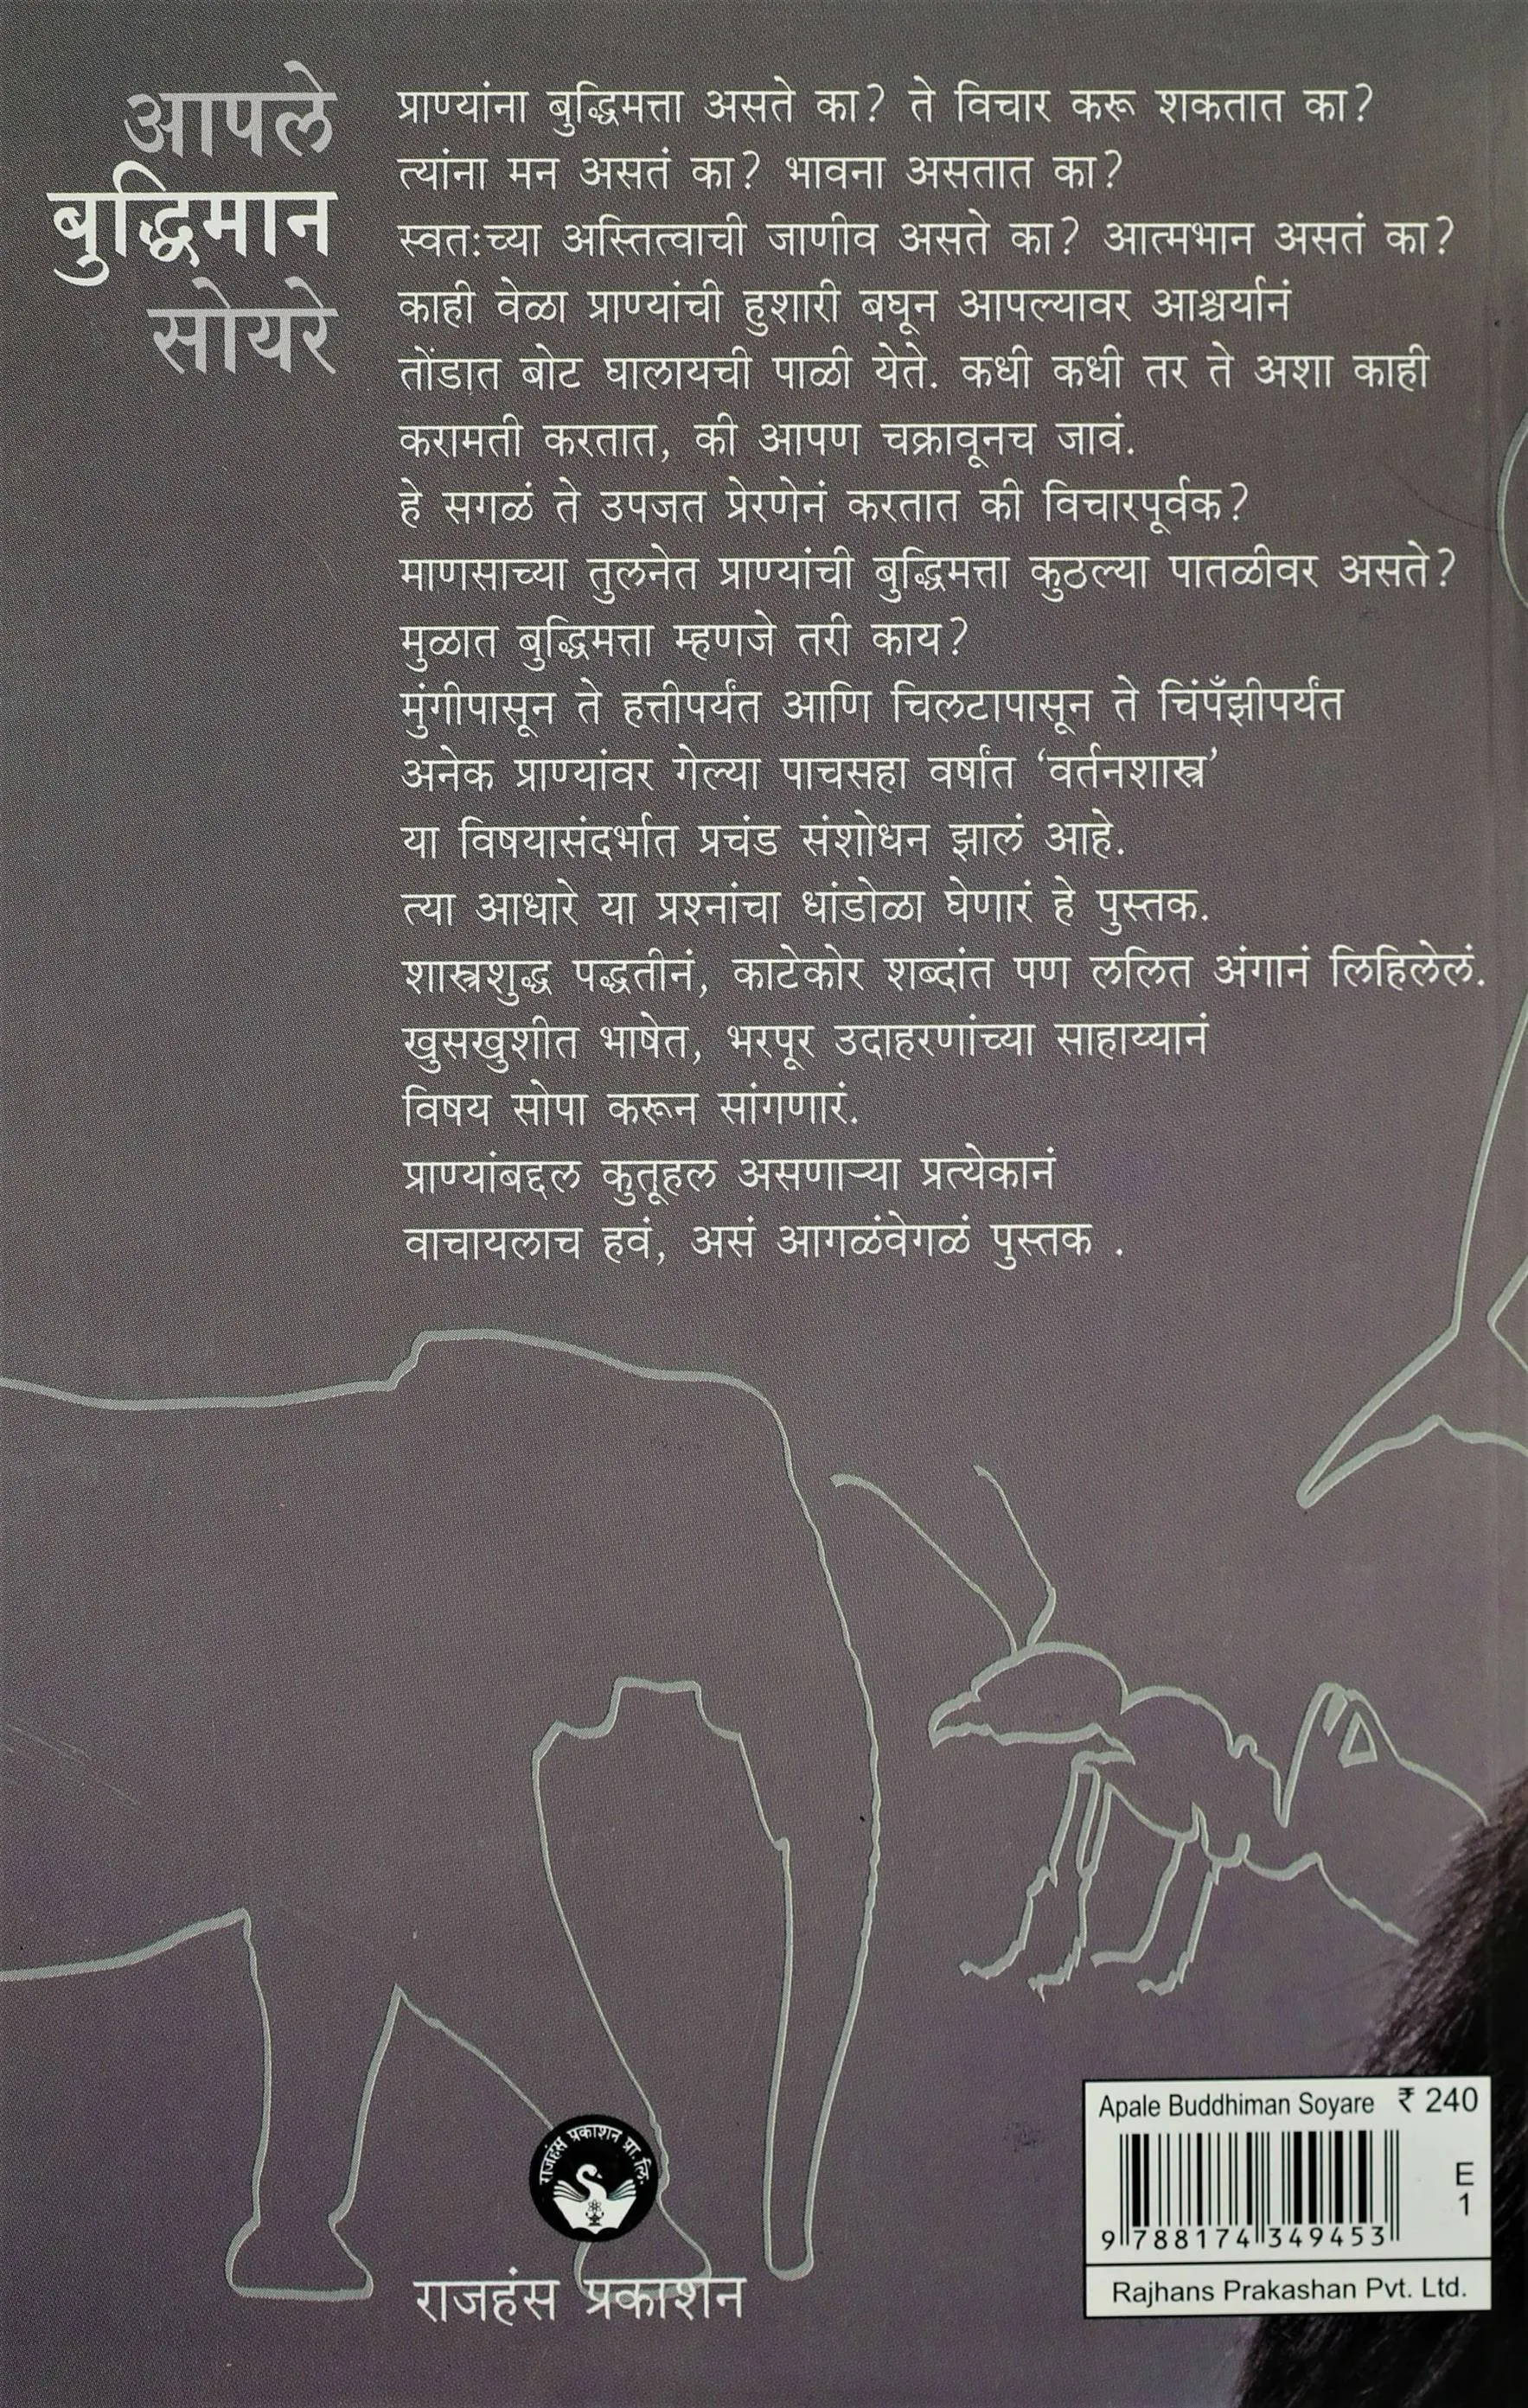 आपले
बुद्धिमान
सोयरे
प्राण्यांना बुद्धिमत्ता असते का? ते विचार करू शकतात का?
त्यांना मन असतं का? भावना असतात का?
स्वतःच्या अस्तित्वाची जाणीव असते का? आत्मभान असतं का?
काही वेळा प्राण्यांची हुशारी बघून आपल्यावर आश्चर्यानं
तोंडात बोट घालायची पाळी येते. कधी कधी तर ते अशा काही
करामती करतात, की आपण चक्रावूनच जावं.
हे सगळं ते उपजत प्रेरणेनं करतात की विचारपूर्वक?
माणसाच्या तुलनेत प्राण्यांची बुद्धिमत्ता कुठल्या पातळीवर असते?
मुळात बुद्धिमत्ता म्हणजे तरी काय?
मुंगीपासून ते हत्तीपर्यंत आणि चिलटापासून ते चिंपँझीपर्यंत
अनेक प्राण्यांवर गेल्या पाचसहा वर्षांत ‘वर्तनशास्त्र’
या विषयासंदर्भात प्रचंड संशोधन झालं आहे.
त्या आधारे या प्रश्नांचा धांडोळा घेणारं हे पुस्तक.
शास्त्रशुद्ध पद्धतीनं, काटेकोर शब्दांत पण ललित अंगानं लिहिलेलं.
खुसखुशीत भाषेत, भरपूर उदाहरणांच्या साहाय्यानं
विषय सोपा करून सांगणारं.
प्राण्यांबद्दल कुतूहल असणाऱ्या प्रत्येकानं
वाचायलाच हवं, असं आगळंवेगळं पुस्तक .
राजहंस प्रकाशन प्रा. लि.
राजहंस प्रकाशन
Apale Buddhiman Soyare ₹ 240
E
1
9 788174 349453
Rajhans Prakashan Pvt. Ltd.